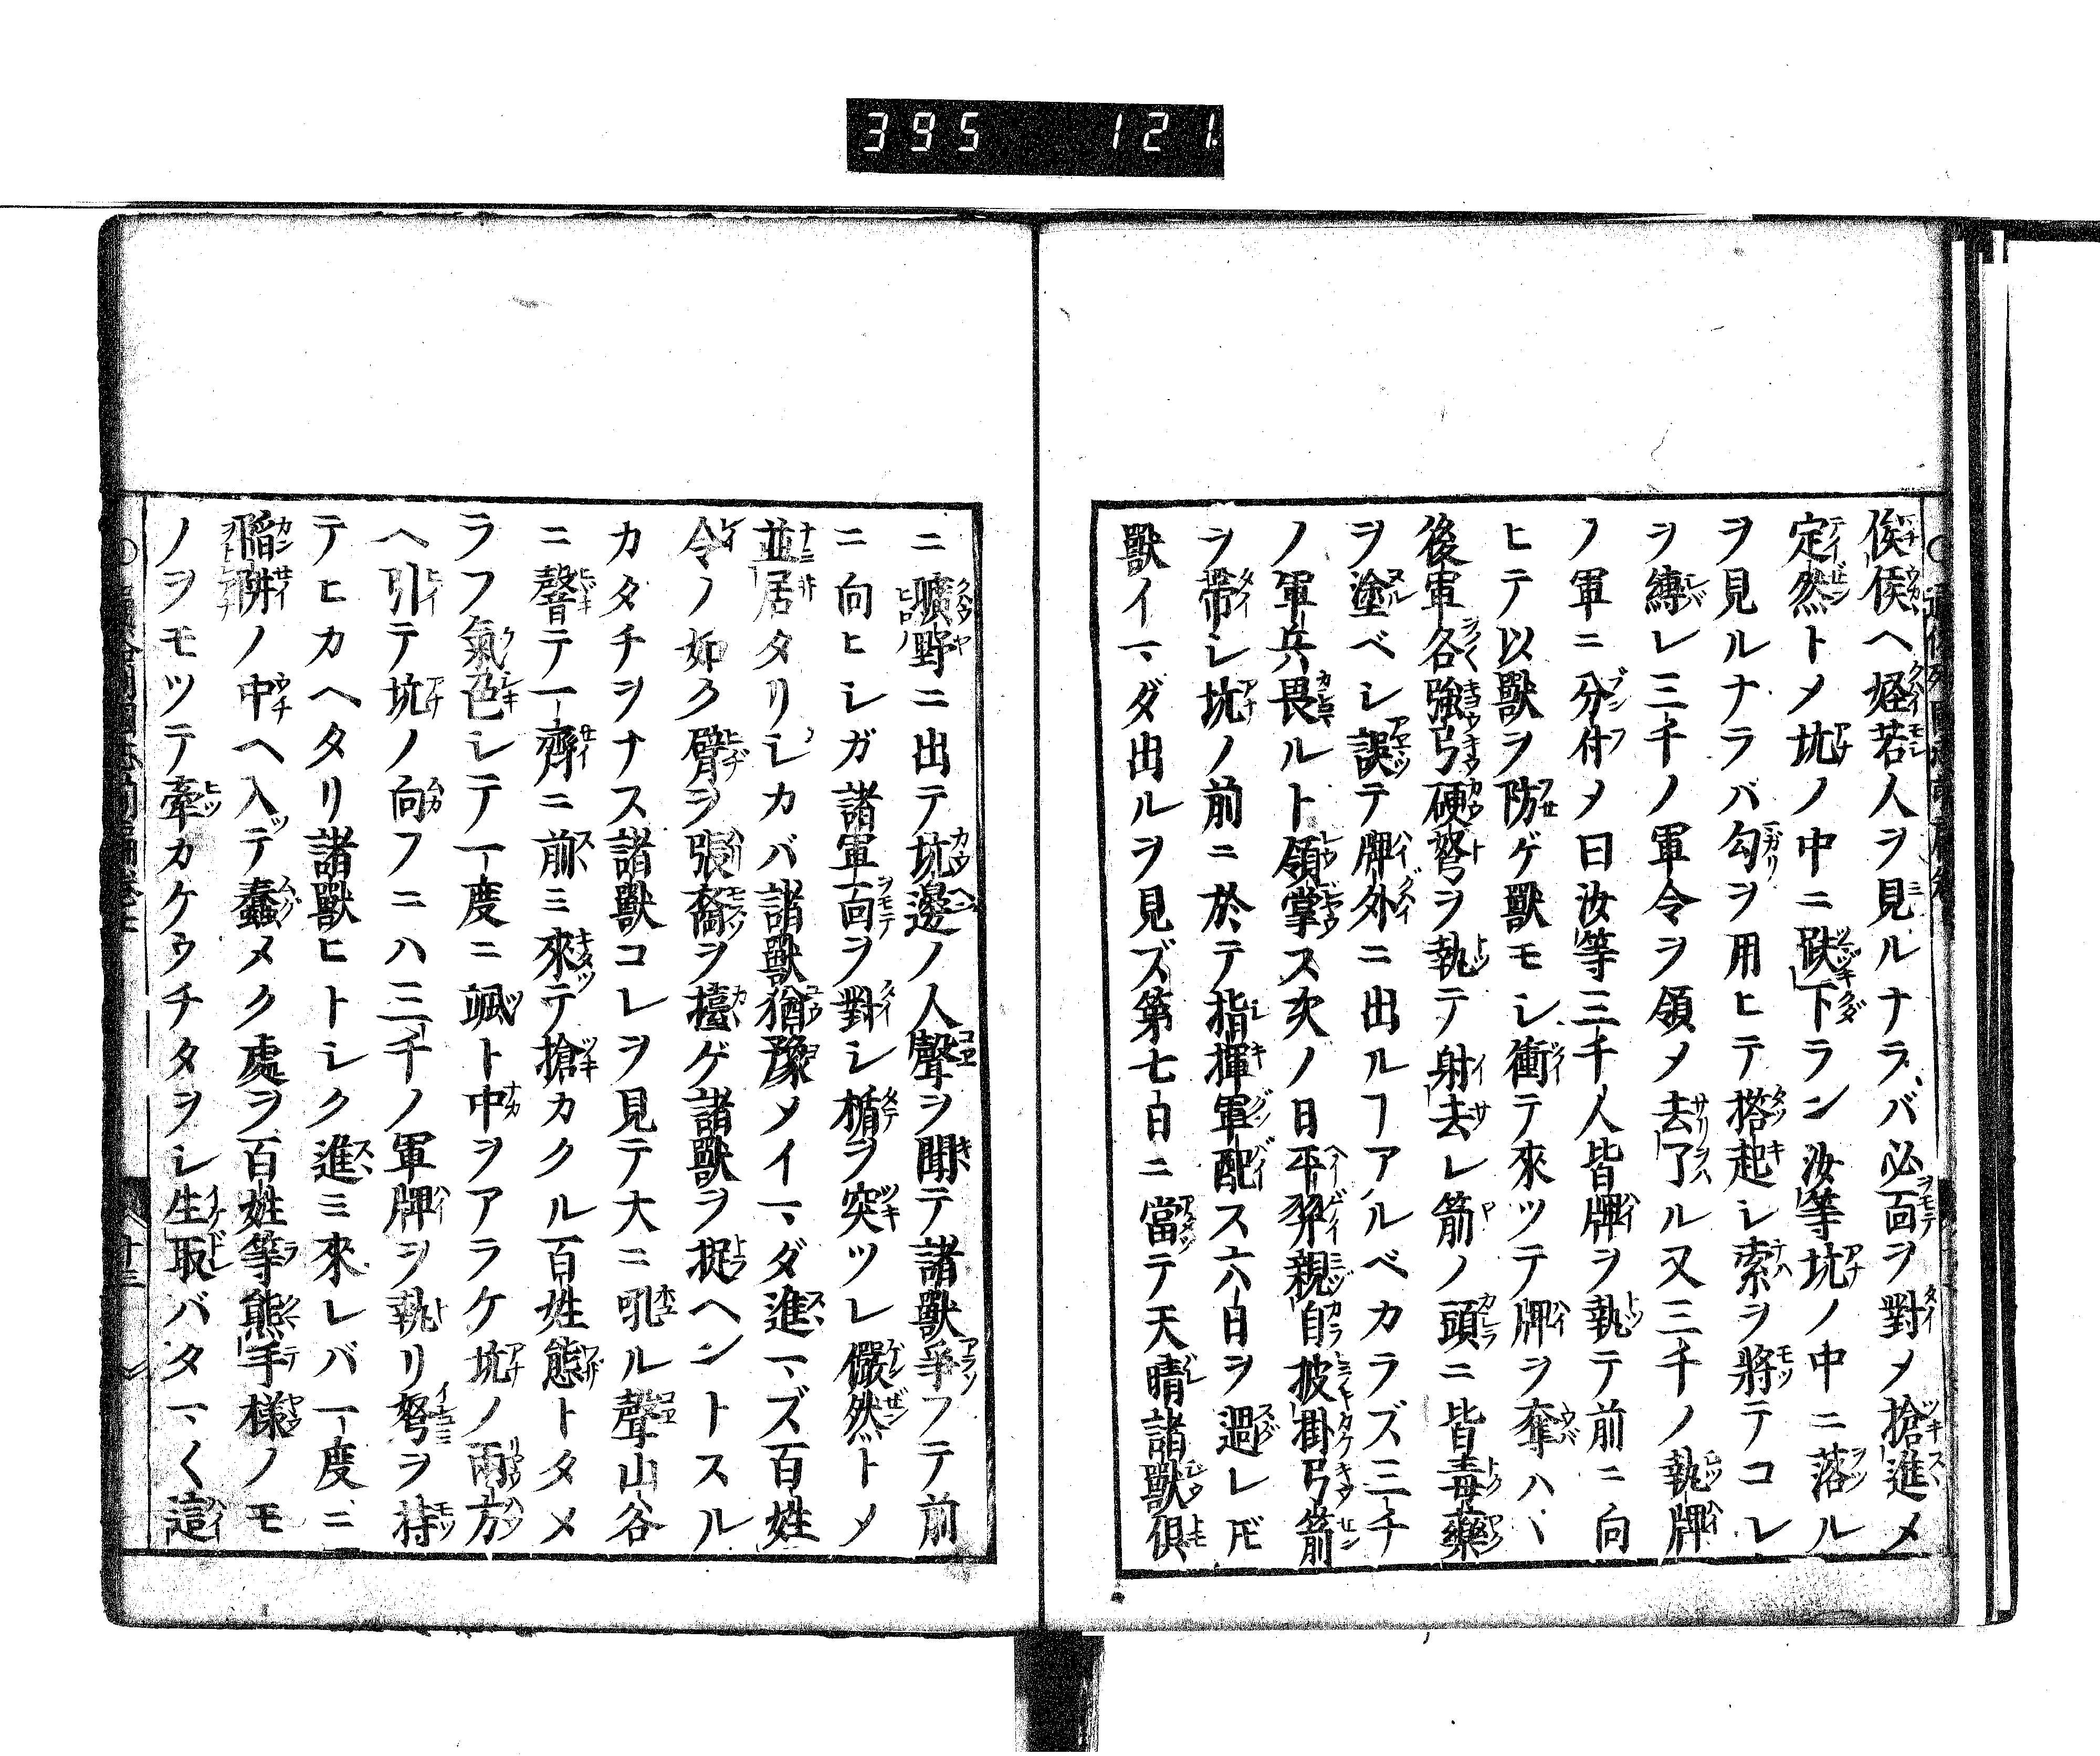 395 121
俟候ヘ怪若人ヲ見ルナラバ必面ヲ對メ搶進メ
定然トメ坑ノ中ニ跌下ラン汝等坑ノ中ニ落ル
ヲ見ルナラバ勾ヲ用ヒテ搭起シ索ヲ將テコレ
ヲ縛レ三千ノ軍令ヲ領メ去了ル又三千ノ執牌
ノ軍ニ分付メ曰汝等三千人皆牌ヲ執テ前ニ向
ヒテ以獸ヲ防ゲ獸モシ衝テ來ツテ牌ヲ奪ハヽ
後軍各強弓硬弩ヲ執テ射去レ箭ノ頭ニ皆毒藥
ヲ塗ベシ誤テ牌外ニ出ルヿアルベカラズ三千
ノ軍兵畏ルト領掌ス次ノ日平羿親自披掛弓箭
ヲ帶シ坑ノ前ニ於テ指揮軍配ス六日ヲ過レ𪜈
獸イマダ出ルヲ見ズ第七日ニ當テ天晴諸獸俱
ニ曠野ニ出テ坑邊ノ人聲ヲ聞テ諸獸爭フテ前
ニ向ヒシガ諸軍面ヲ對シ楯ヲ突ツレ儼然トメ
並居タリシカバ諸獸猶豫メイマダ進マズ百姓
令ノ如ク臂ヲ張裔ヲ擡ゲ諸獸ヲ捉ヘントスル
カタチヲナス諸獸コレヲ見テ大ニ吼ル聲山谷
ニ聲テ一齊ニ前ミ來テ搶カクル百姓態トタメ
ラフ氣色シテ一度ニ颯ト中ヲアラケ坑ノ兩方
ヘ引テ坑ノ向フニハ三千ノ軍牌ヲ執リ弩ヲ持
テヒカヘタリ諸獸ヒトシク進ミ來レバ一度ニ
陷阱ノ中ヘ入テ蠢メク處ヲ百姓等熊手樣ノモ
ノヲモツテ牽カケウチタヲシ生取バタマ〱這
十三